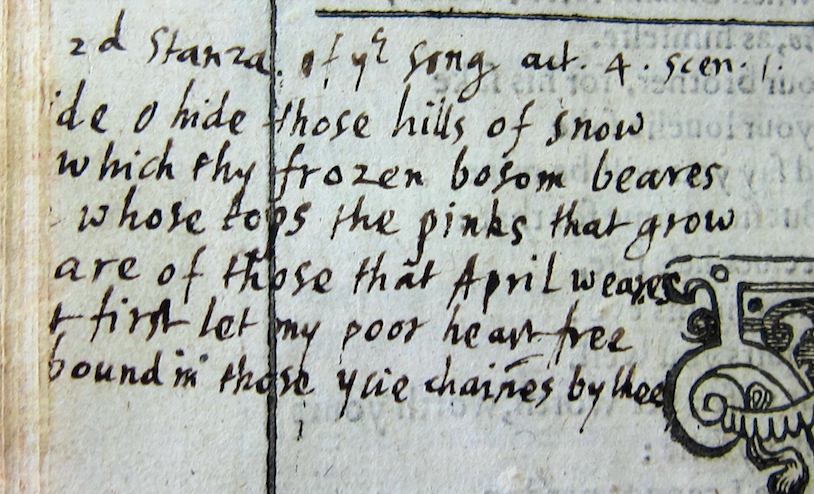 2d Stanza. of yͤ song act. 4. scen. 1.
ide o hide those hills of snow
which thy frozen bosom beares
whose tops the pinks that grow
are of those that April weares
t first let my poor heart free
bound in those ycie chaines by thee